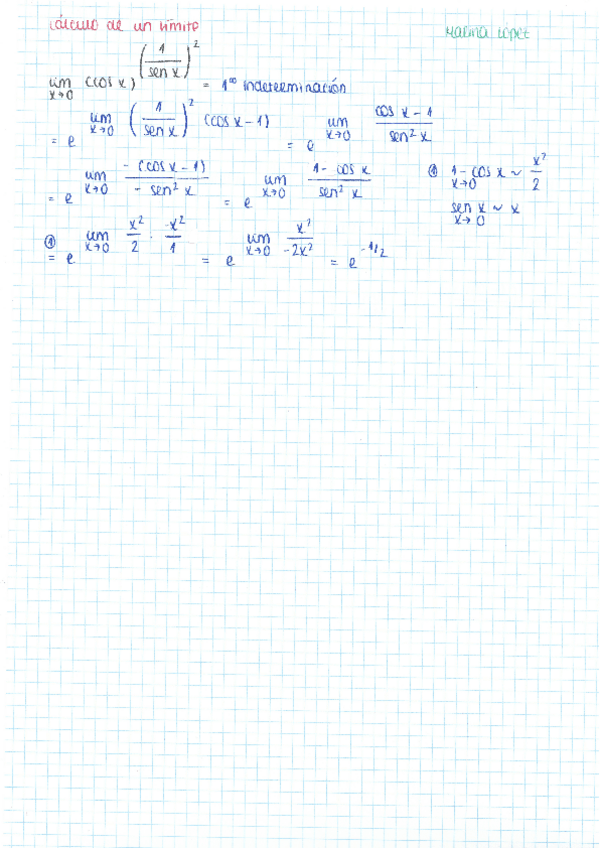 Cálculo de un límite
Marina López
lim x→0 (cos x)^(1/sen x)^2 = 1^∞ indeterminación
= e^ lim x→0 (1/sen x)^2 (cos x - 1) = e^ lim x→0 (cos x - 1)/(sen² x)
= e^ lim x→0 (-(cos x - 1))/(- sen² x) = e^ lim x→0 (1 - cos x)/(sen² x)
① 1 - cos x ~ x²/2 x→0
sen x ~ x x→0
① = e^ lim x→0 x²/2 · -x²/1 = e^ lim x→0 x²/-2x² = e^-1/2